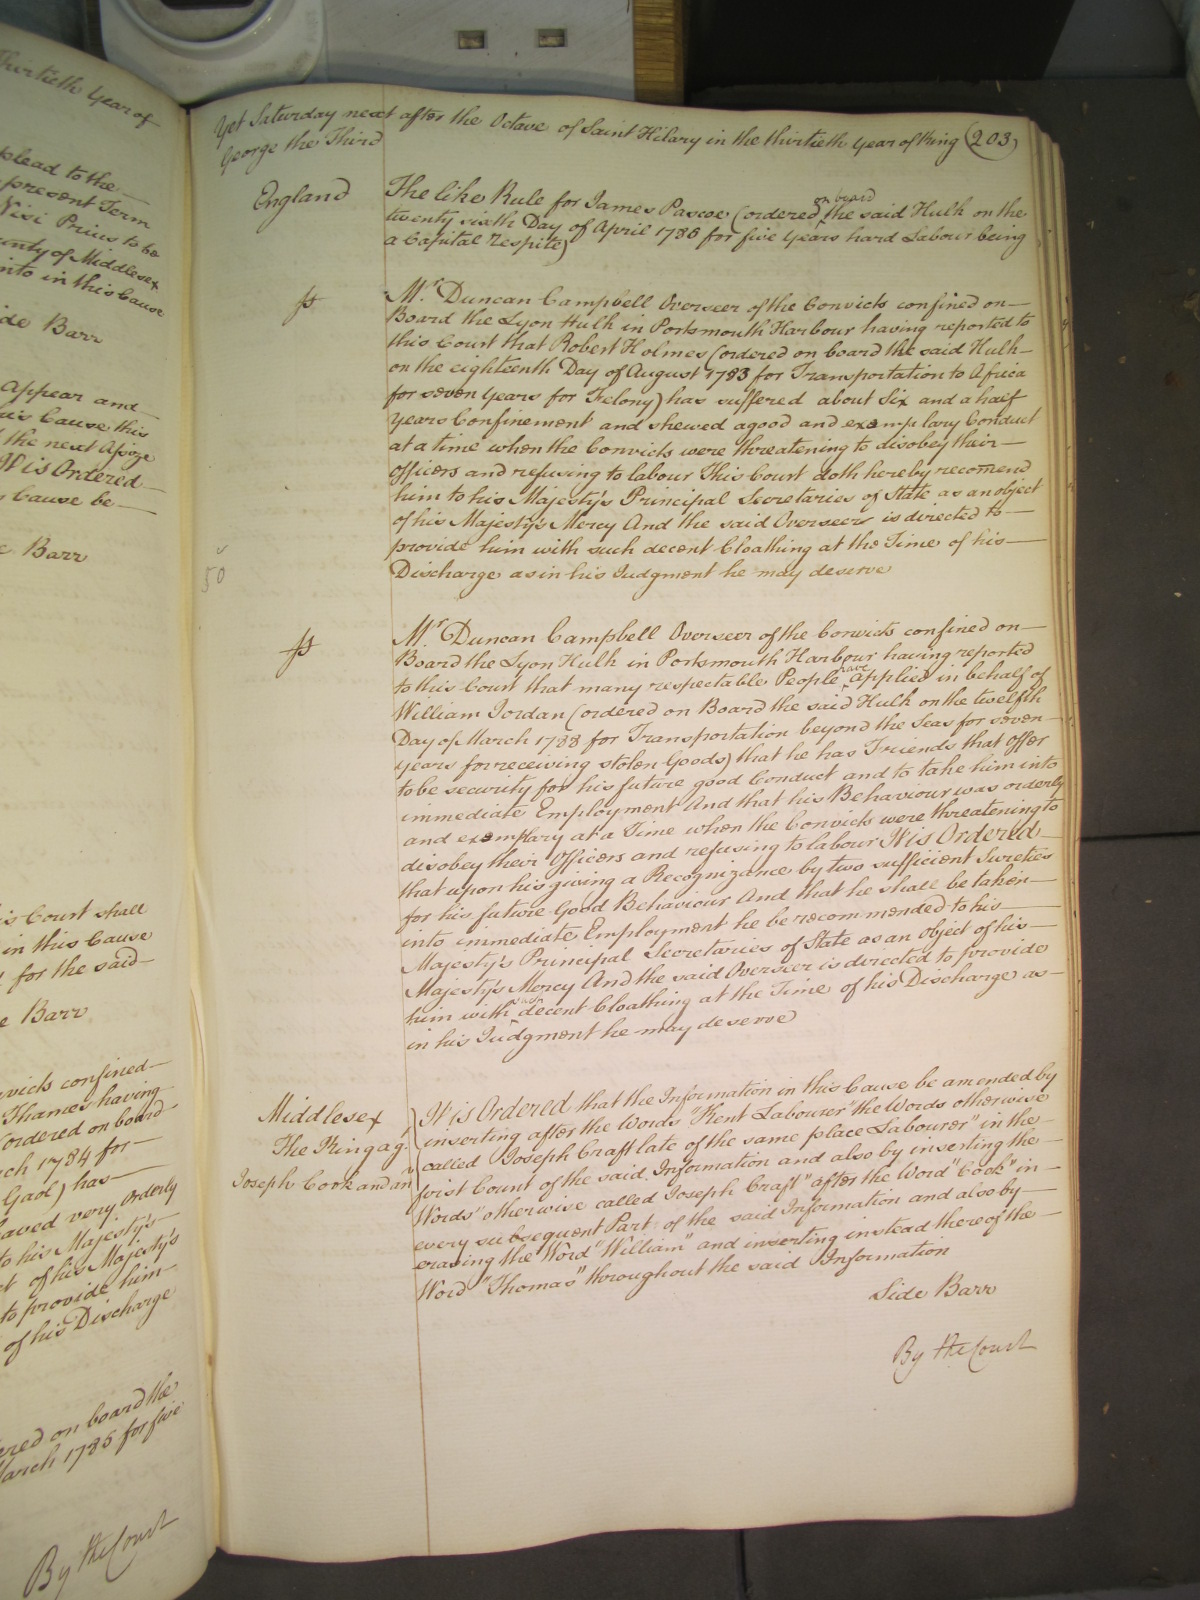 Thirtieth Year of
plead to the
present Term
Nisi Prius to be
County of Middlesex
into in this Cause
Side Barr
Appear and
this Cause this
the next Assize
It is Ordered
Cause be
Barr
this Court shall
in this Cause
for the said
Barr
confined
Thames having
(ordered on board
March 1784 for
Gaol) has
behaved very orderly
to his Majesty's
of his Majesty's
to provide him
of his Discharge
ordered on board the
March 1785 for five
By the Court
Yet Saturday next after the Octave of Saint Hilary in the thirtieth Year of King (203)
George the Third
England The like Rule for James Pascoe (ordered on board the said Hulk on the
twenty sixth Day of April 1786 for five Years hard Labour being
a Capital Respite)
ss Mr Duncan Campbell Overseer of the Convicts confined on
Board the Lyon Hulk in Portsmouth Harbour having reported to
this Court that Robert Holmes (ordered on board the said Hulk
on the eighteenth Day of August 1783 for Transportation to Africa
for seven Years for Felony) has suffered about Six and a half
Years Confinement and shewed a good and exemplary Conduct
at a time when the Convicts were threatening to disobey their
Officers and refusing to labour This Court doth hereby recomend
him to his Majesty's Principal Secretaries of State as an object
of his Majesty's Mercy And the said Overseer is directed to
provide him with such decent Cloathing at the Time of his
Discharge as in his Judgment he may deserve
50
ss Mr Duncan Campbell Overseer of the Convicts confined on
Board the Lyon Hulk in Portsmouth Harbour having reported
to this Court that many respectable People have applied in behalf of
William Jordan (ordered on Board the said Hulk on the twelfth
Day of March 1788 for Transportation beyond the Seas for seven
years for receiving stolen Goods) that he has Friends that offer
to be security for his future good Conduct and to take him into
immediate Employment And that his Behaviour was orderly
and exemplary at a Time when the Convicts were threatening to
disobey their Officers and refusing to labour It is Ordered
that upon his giving a Recognizance by two sufficient Sureties
for his future Good Behaviour And that he shall be taken
into immediate Employment he be recommended to his
Majesty's Principal Secretaries of State as an Object of his
Majesty's Mercy And the said Overseer is directed to provide
him with such decent Cloathing at the Time of his Discharge as
in his Judgment he may deserve
Middlesex
The King agt
Joseph Cock and anr
It is Ordered that the Information in this Cause be amended by
inserting after the Words "Kent Labourer" the Words otherwise
called Joseph Craft late of the same place Labourer" in the
first Count of the said Information and also by inserting the
Words "otherwise called Joseph Craft" after the Word "Cock" in
every subsequent Part of the said Information and also by
erasing the Word "William" and inserting instead thereof the
Word "Thomas" throughout the said Information
Side Barr
By the Court